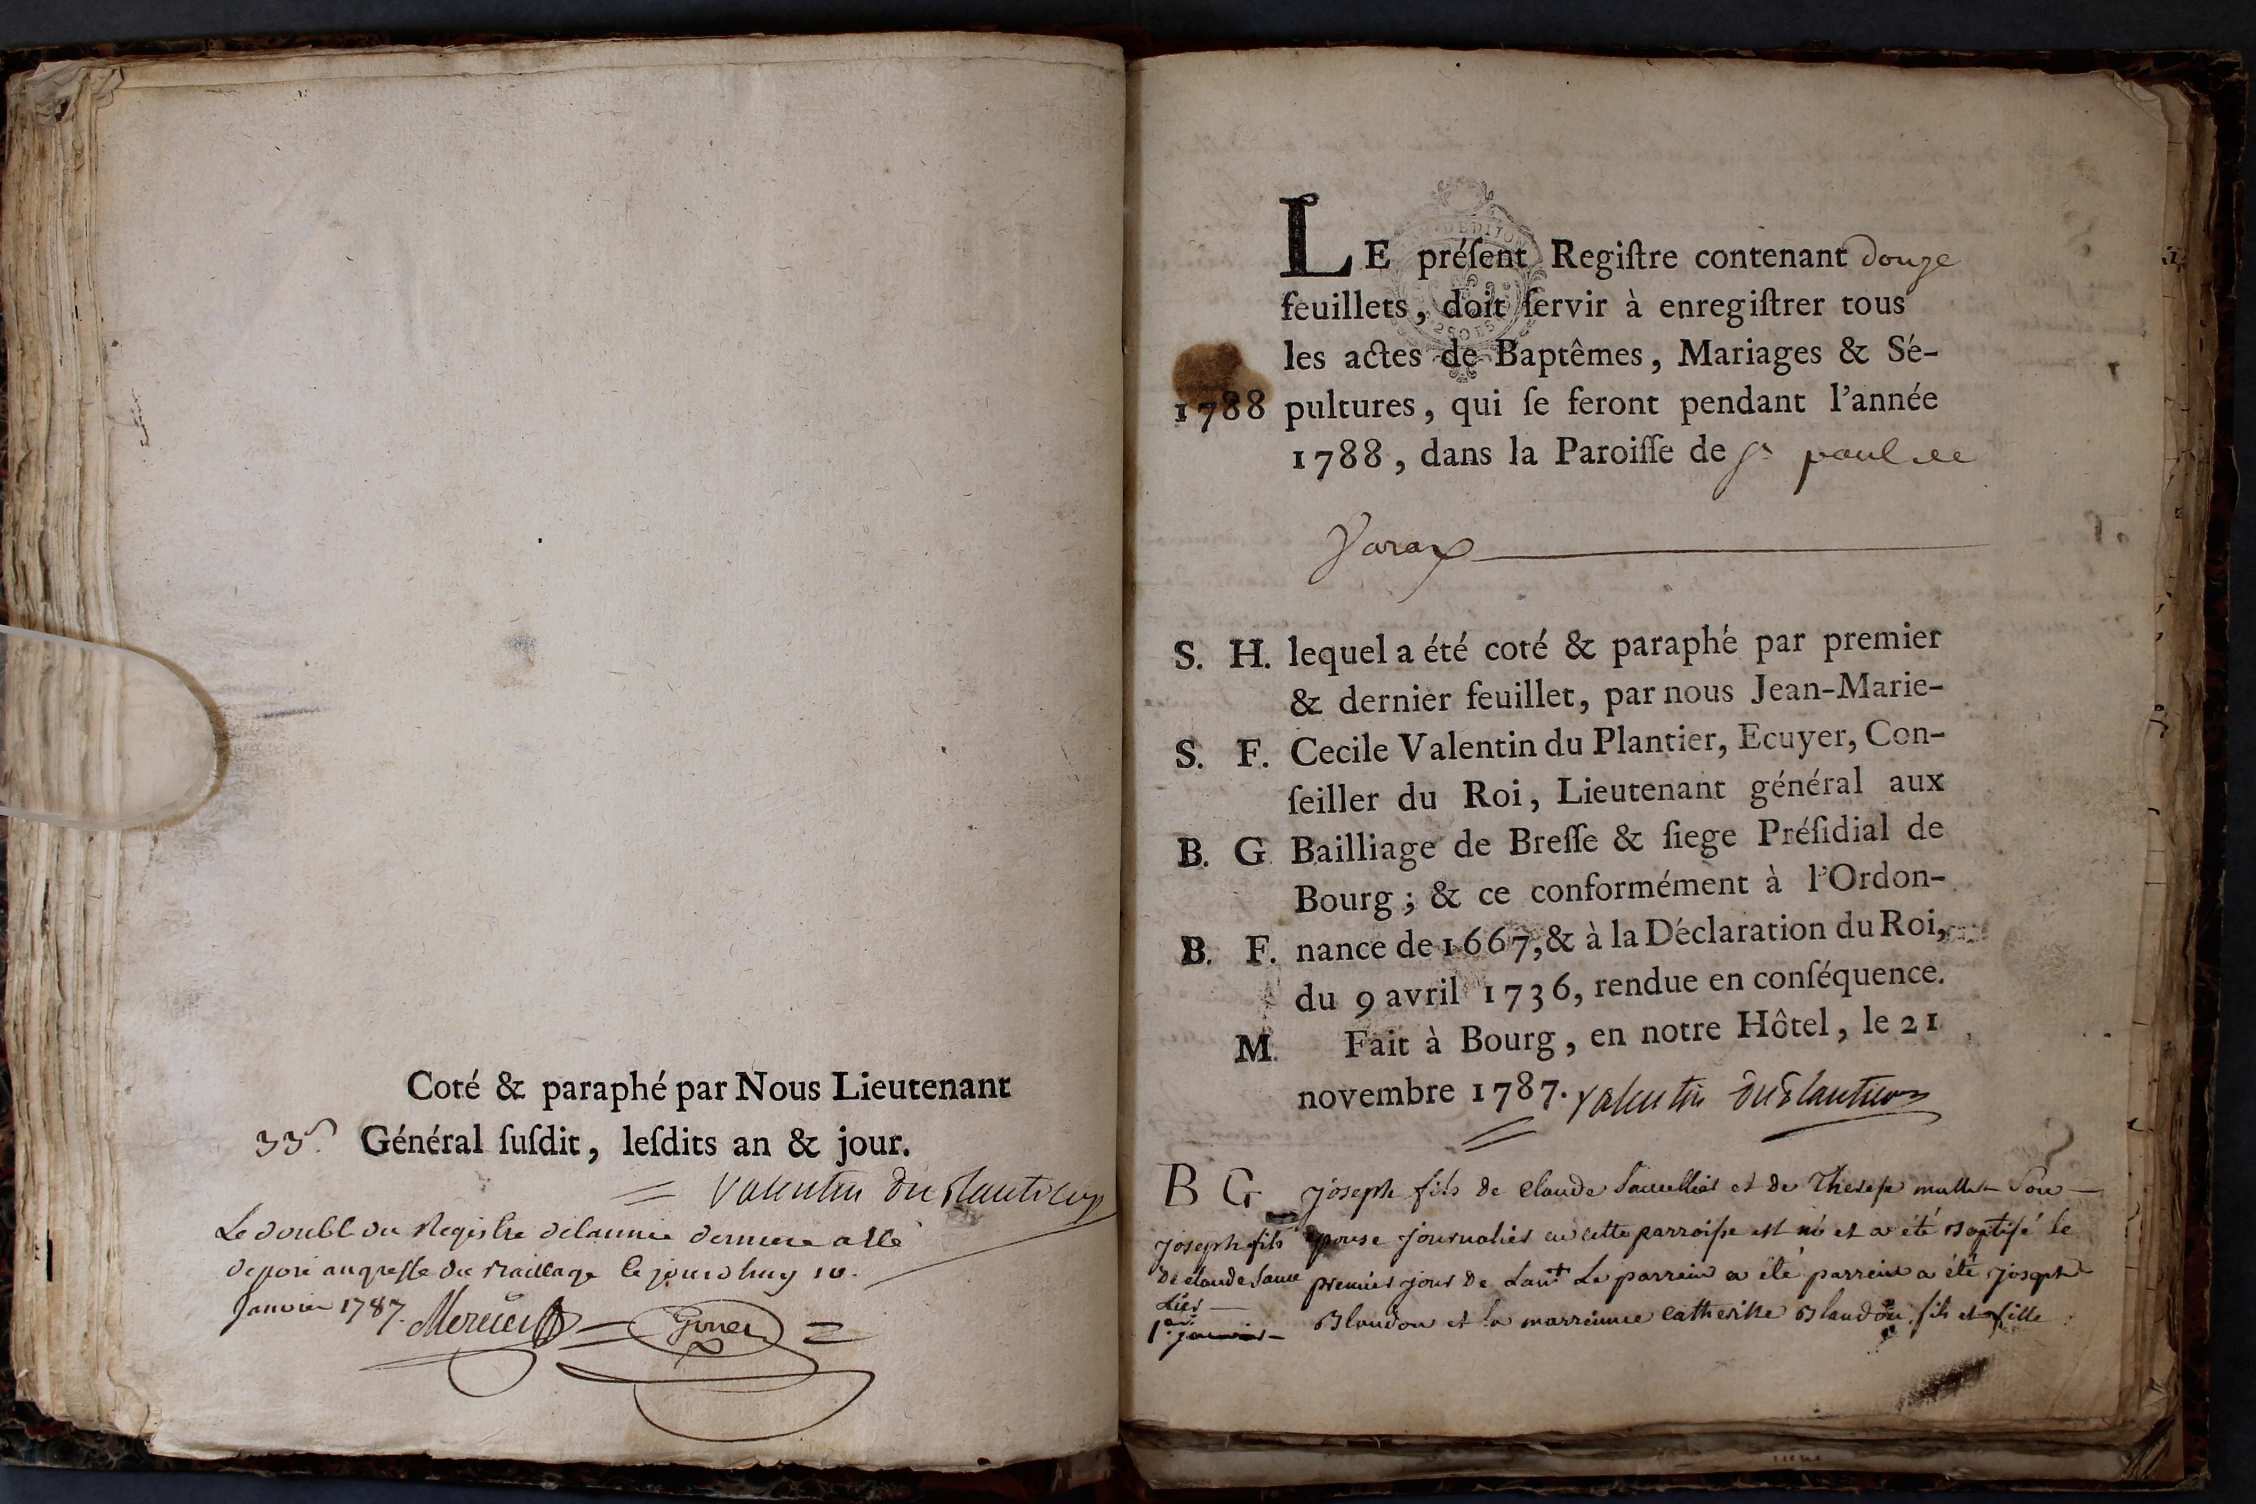 Coté & paraphé par Nous Lieutenant
33e. Général ſuſdit, leſdits an & jour.
Valentin Duplantier
Le double du Registre de l'année derniere a été
déposé au greffe du Bailliage le jourd'huy 10.
Janvier 1787.
LE préſent Regiſtre contenant douze
feuillets, doit ſervir à enregiſtrer tous
les actes de Baptêmes, Mariages & Sé-
1788 pultures, qui ſe feront pendant l'année
1788, dans la Paroiſſe de St paul de
Varax
S. H. lequel a été coté & paraphé par premier
& dernier feuillet, par nous Jean-Marie-
S. F. Cecile Valentin du Plantier, Ecuyer, Con-
ſeiller du Roi, Lieutenant général aux
B. G Bailliage de Breſſe & ſiege Préſidial de
Bourg; & ce conformément à l'Ordon-
B. F. nance de 1667, & à la Déclaration du Roi,
du 9 avril 1736, rendue en conſéquence.
M. Fait à Bourg, en notre Hôtel, le 21
novembre 1787. Valentin Duplantier
B G joseph fils de claude et de Therese son
joseph fils epouse journalier en cette parroisse est né et a été baptisé le
de claude premier jour de l'an Le parrein a été parrein a été joseph
lier Blandon et la marreinne catherine Blandon fils et fille
1er janvier